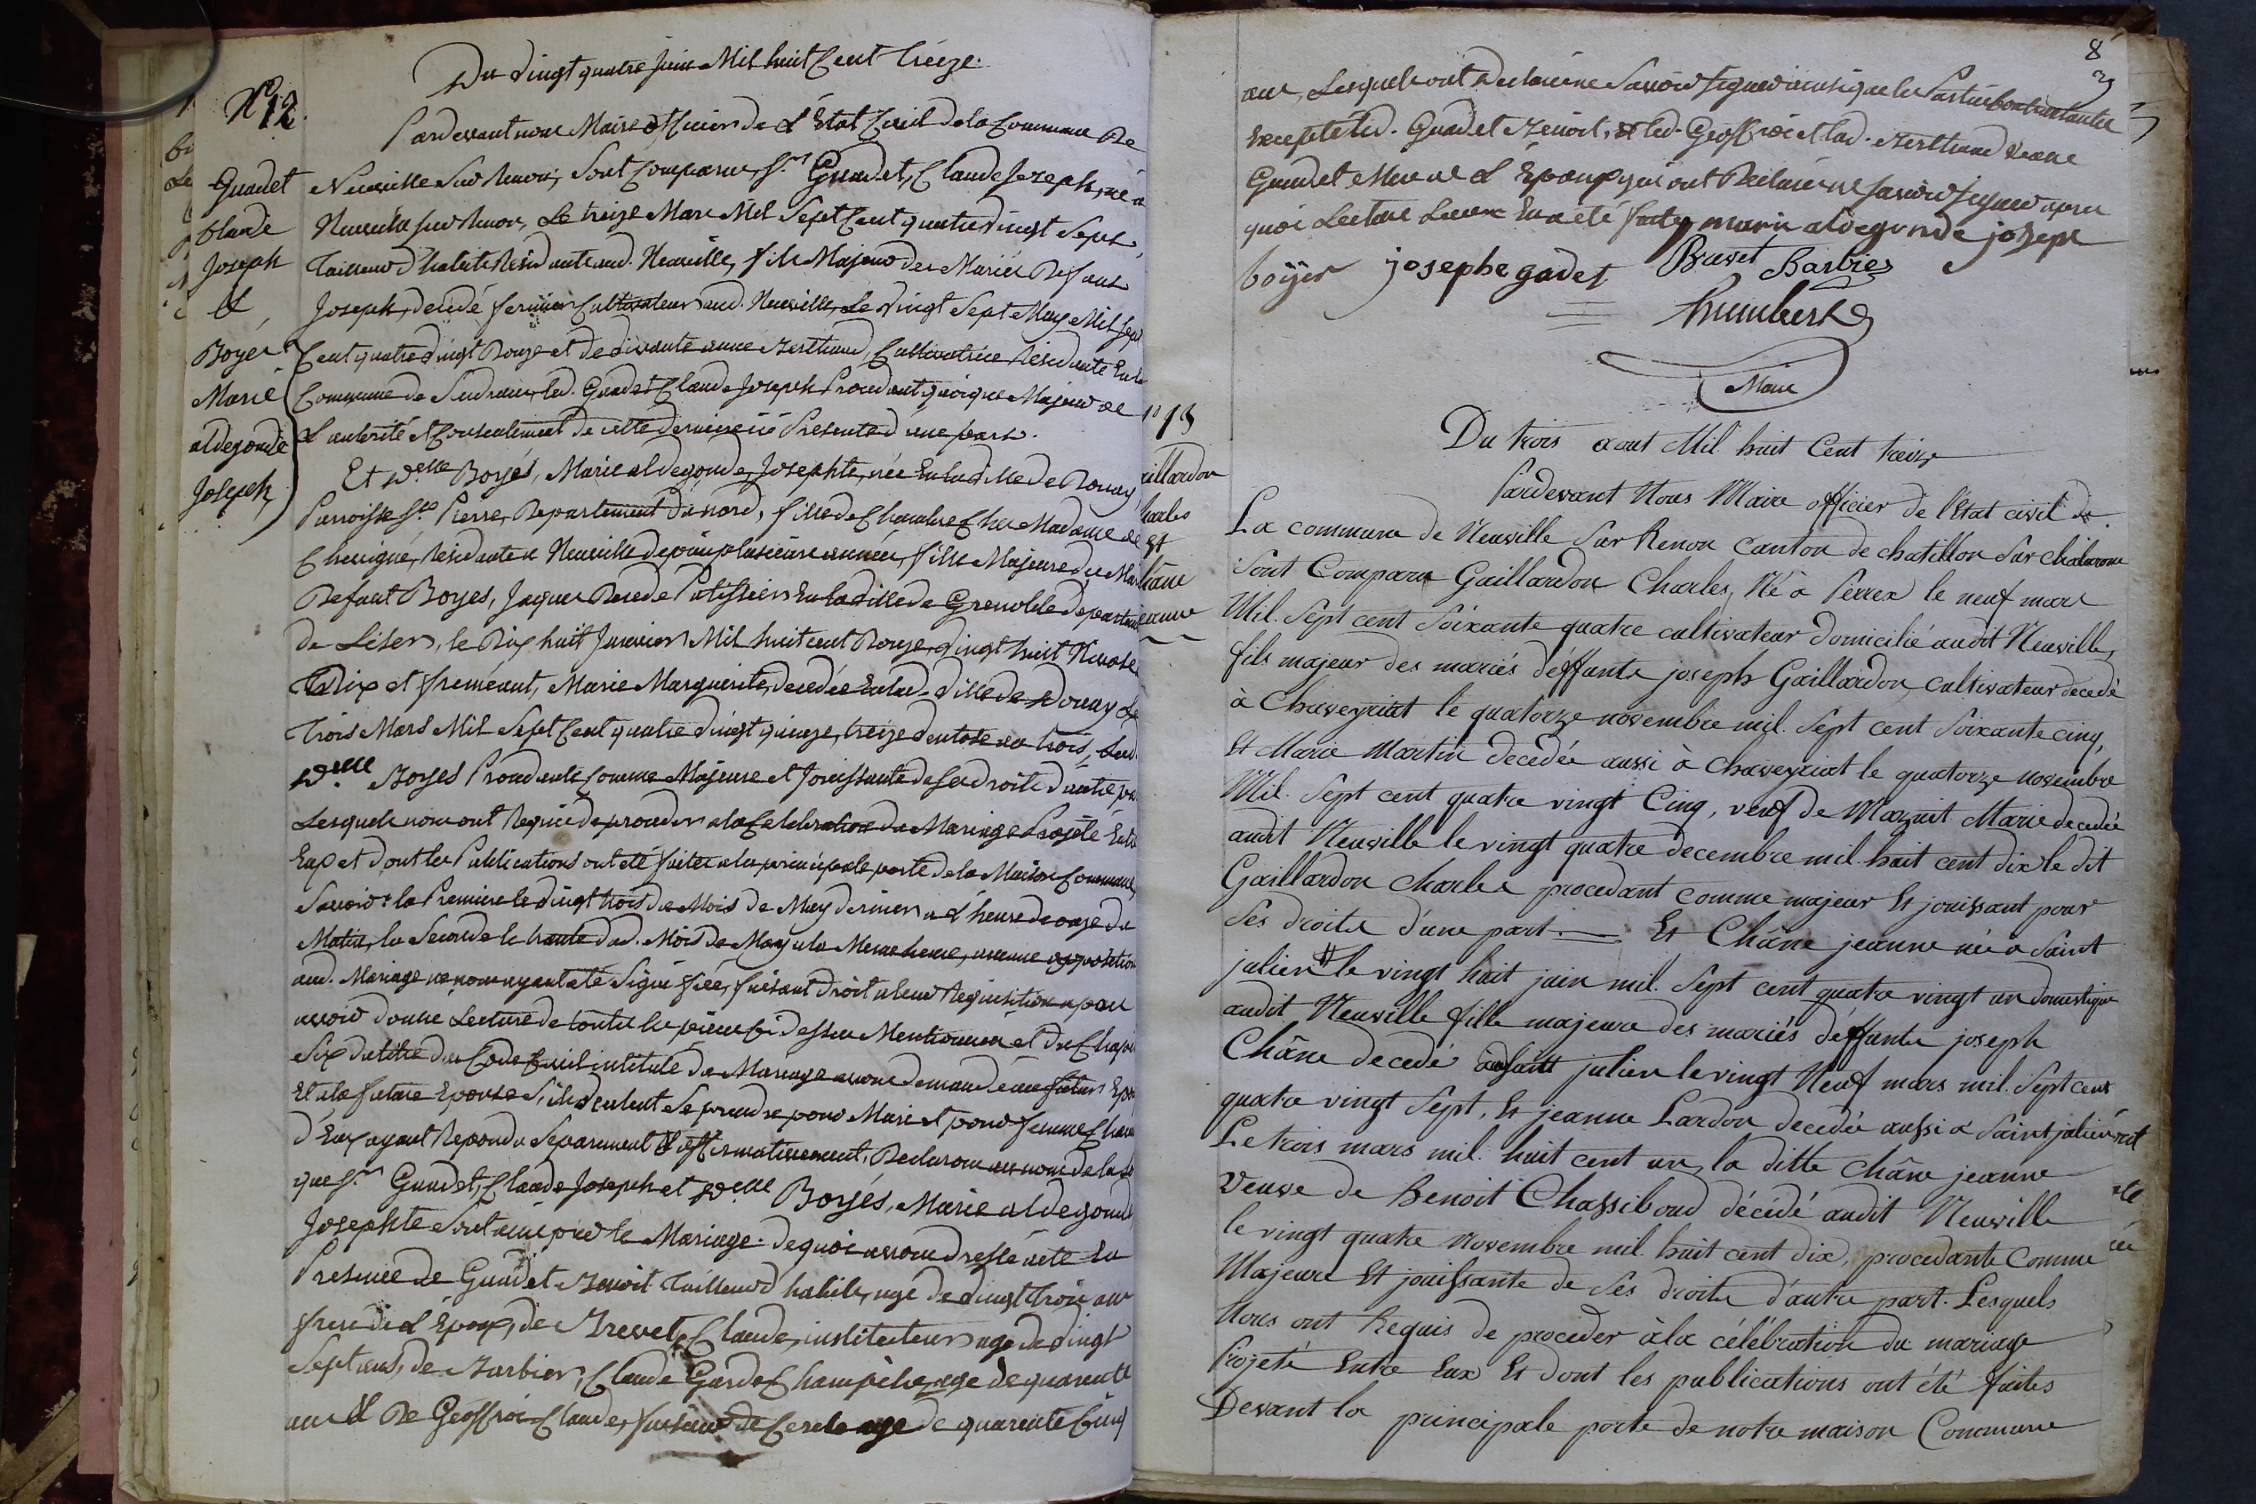 Du vingt quatre juin Mil huit Cent Treize.
N° 12.
Guadet
Claude
Joseph
&
Boyer
Marie
aldegonde
Joseph
Pardevant nous Maire officier de L'État Civil de la Commune De
Neuville sur Renon, sont Comparus, Sr. Guadet, Claude Joseph, né à
Neuville sur Renon, Le treize Mars Mil Sept Cent quatre vingt Sept,
Tailleur d'habits Résidant aud. Neuville, fils Majeur des Mariés Défunt
Joseph, décédé fermier Cultivateur aud. Neuville, Le vingt Sept May Mil Sept
Cent quatre vingt Douze et de vivante anne Berthaud, Cultivatrice Résidante En la
Commune de Sudrans, led. Guadet Claude Joseph Procedant quoique Majeur de
L'autorité et Consentement de cette dernière ici Présente d'une part.
Et D.elle Boyés, Marie aldegonde, Josephte, née En la ville de Douay
Parroisse St. Pierre, Departement du nord, fille de Chambre Chez Madame de
Chevigné, résidante à Neuville depuis plusieurs années, fille Majeure des Mar
Defunt Boyes, Jaques Décédé Patissier En la ville de Grenoble département
de Liser, le Dix huit Janvier Mil huit cent Douze, vingt huit Nivose
Dix et fremeaut, Marie Marguerite, decedée En lad. ville de Douay Le
Trois Mars Mil Sept Cent quatre vingt quinze, treize ventose an trois, lad.
D.elle Boyes Procedante Comme Majeure et Jouissante de ses droits d'autre part
Lesquels nous ont Requis de proceder a la Celebration du Mariage Projeté Entre
Eux et dont les Publications ont été faites a la principale porte de la Maison Commune,
Savoir: la Premiere le vingt trois du Mois de May dernier a L'heure de onze du
Matin, la Seconde le trente dud. Mois de May a la Meme heure, aucune opposition
aud. Mariage ne nous ayant été Signifiée, faisant droit a leur Requisition apres
avoir donné Lecture de toutes les pieces Ci dessus Mentionnées et du Chapitre
Six du titre du Code Civil intitulé du Mariage avons demandé au futur Epoux
Et a la future Epouse S'ils veulent Se prendre pour Mari et pour femme Chacun
d'Eux ayant Repondu Séparement & affirmativement, Declarons au nom de la Loi
que Sr. Guadet, Claude Joseph et D.elle Boyés, Marie aldegonde
Josephte Sont unis par le Mariage. de quoi avons dressé acte En
Presence de Guadet Benoit Tailleur d'habits, agé de vingt trois ans
frere de L'Epoux, de Brevet, Claude, instituteur agé de vingt
Sept ans, de Barbier, Claude Garde Champêtre, agé de quarante
ans & De Geoffroi Claude, faiseur de Cercle agé de quarante Cinq
8
ans, Lesquels ont Declaré ne Savoir Signer ainsi que les Parties Contractantes
Excepté led. Guadet Benoit, & led. Geoffroi et lad. Berthaud veuve
Guadet Mere de L'Epoux qui ont Declaré ne Savoir Signer apres
quoi Lecture Leur En a été faite, marie aldegonde joseph
boÿer josephe gadet Brevet Barbier
humbert
Maire
13
aillardon
harles
Et
hâne
eanne
Du trois aout Mil huit Cent treize
Pardevant Nous Maire officier de l'Etat civil de
La commune de Neuville Sur Renon Canton de chatillon Sur Chalaronne
Sont Comparu Gaillardon Charles, Né à Perrex le neuf mars
Mil. Sept cent Soixante quatre cultivateur domicilié audit Neuville,
fils majeur des mariés déffunts joseph Gaillardon, cultivateur decedé
à Chaveyriat le quatorze novembre mil. Sept cent Soixante cinq,
Et Marie Martin decedée aussi à Chaveyriat le quatorze novembre
Mil. Sept cent quatre vingt Cinq, veuf de Mazuit Marie decedée
audit Neuville le vingt quatre decembre mil. huit cent dix le dit
Gaillardon charles procedant comme majeur Et jouissant pour
Ses droits d'une part. — Et Châne jeanne née a Saint
julien # le vingt huit juin mil. Sept cent quatre vingt un domestique
audit Neuville fille majeure des mariés déffunts joseph
Châne decedé audit Saint julien le vingt Neuf mars mil. Sept cent
quatre vingt Sept, Et jeanne Lardon decedée aussi a Saint julien
Le trois mars mil. huit cent un, la ditte châne jeanne
Veuve de Benoit Chassiboud décédé audit Neuville
le vingt quatre Novembre mil. huit cent dix, procedante Comme
Majeure Et jouissante de Ses droits d'autre part. Lesquels
Nous ont Requis de proceder à la célébration du mariage
Projeté Entre Eux Et dont les publications ont été faites
Devant la principale porte de notre maison Commune